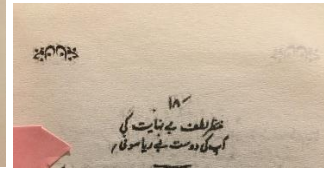 ۱۸
منتظر لطف بے نہایت کی
آپ کی دوست بے ریا سوفی